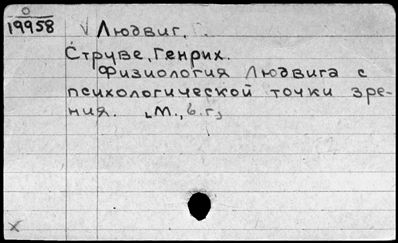 0
19958
Людвиг,
Струве, Генрих.
Физиология Людвига с
психологической точки зре-
ния. [М., б.г.]
x